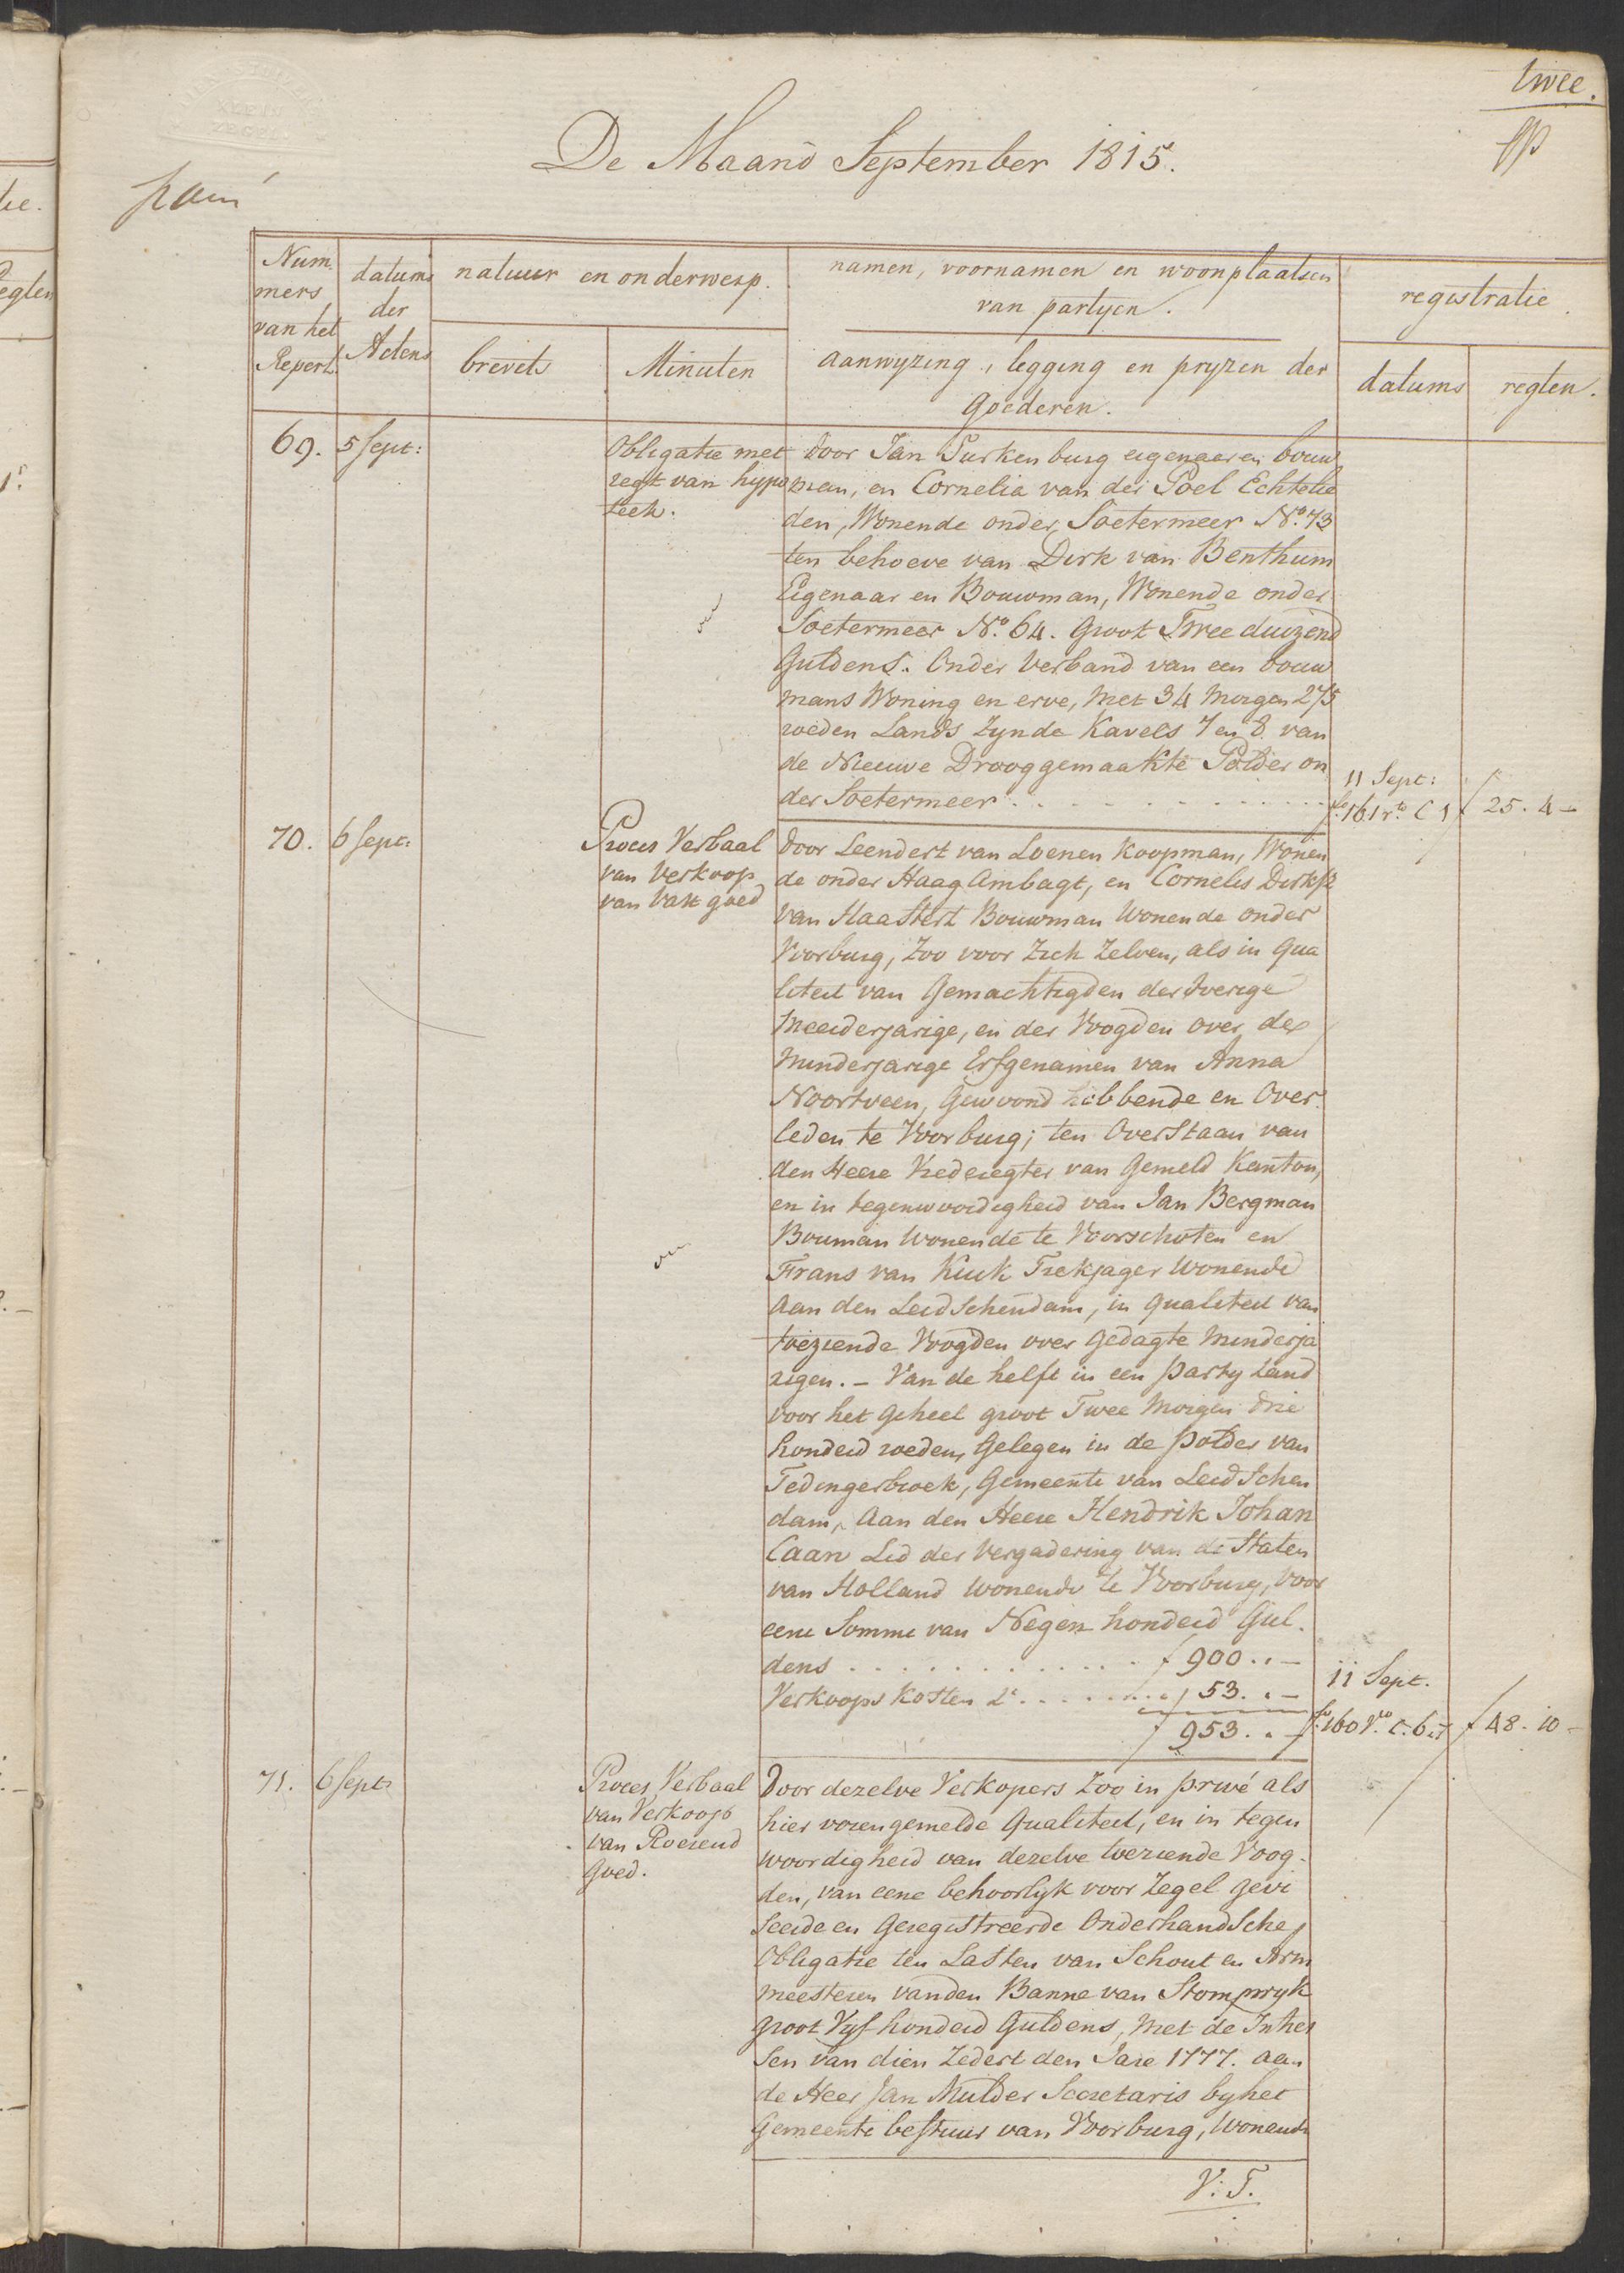 twee.
De Maand September 1815.
Num
mers
van het
Repert.
datums
der
Actens
natuur en onderwerp.
brevets
Minuten
namen, voornamen en woonplaatsen
van partyen.
aanwyzing, legging en pryzen der
Goederen.
registratie.
datums
regten.
69. 5 Sept:
Obligatie met
regt van hypo
teek.
Door Jan Turkenburg eigenaar en bouw
man, en Cornelia van der Poel Echtelie
den, Wonende onder Soetermeer No. 73
ten behoeve van Dirk van Benthum
Eigenaar en Bouwman, Wonende onder
Soetermeer No. 64. Groot Twee duizend
Guldens. Onder Verband van een bouw
mans Woning en erve, Met 34 Morgen 275
roeden Lands Zynde Kavels 7 en 8. van
de Nieuwe Drooggemaakte Polder on
der Soetermeer . . . . . . . . .
11 Sept:
fo. 161 ro. C 1
f 25. 4 -
70. 6 Sept:
Proces Verbaal
van Verkoop
van Vast goed
Door Leendert van Loenen Koopman, Wonen
de onder Haag Ambagt, en Cornelis Dirksz
van Haastert Bouwman Wonende onder
Voorburg, Zoo voor Zich Zelven, als in Qua
liteit van Gemachtigden der Overige
Meerderjarige, en der Voogden over de
Minderjarige Erfgenamen van Anna
Noortveen, Gewoond hebbende en Over
leden te Voorburg; ten Overstaan van
den Heere Vrederegter van Gemeld Kanton,
en in tegenwoordigheid van Jan Bergman
Bouman Wonende te Voorschoten en
Frans van Kuik Trekjager Wonende
Aan den Leidschendam, in Qualiteit van
toeziende Voogden over Gedagte Minderja
rigen. - Van de helft in een party Land
voor het Geheel groot Twee Morgen drie
honderd roeden, Gelegen in de polder van
Tedingerbroek, Gemeente van Leidschen
dam, Aan den Heere Hendrik Johan
Caan Lid der Vergadering van de Staten
van Holland Wonende te Voorburg, Voor
eene Somme van Negen honderd Gul
dens . . . . . . . . . . f 900. . -
Verkoops Kosten . . . . . . . f 53. . -
f 953. . -
11 Sept.
fo. 160 Vo. C. 6
f 48. 10 -
71. 6 Sept:
Proces Verbaal
van Verkoop
van Roerend
Goed.
Door dezelve Verkopers Zoo in privé als
hier vorengemelde Qualiteit, en in tegen
woordigheid van dezelve toeziende Voog-
den, van eene behoorlyk voor Zegel gevi
seerde en Geregistreerde Onderhandsche
Obligatie ten Lasten van Schout en Arm
meesteren van den Banne van Stompwyk
groot Vyf honderd Guldens, Met de Intres
sen van dien Zedert den Jare 1777. aan
de Heer Jan Mulder Secretaris by het
Gemeente bestuur van Voorburg, Wonende
V: T.